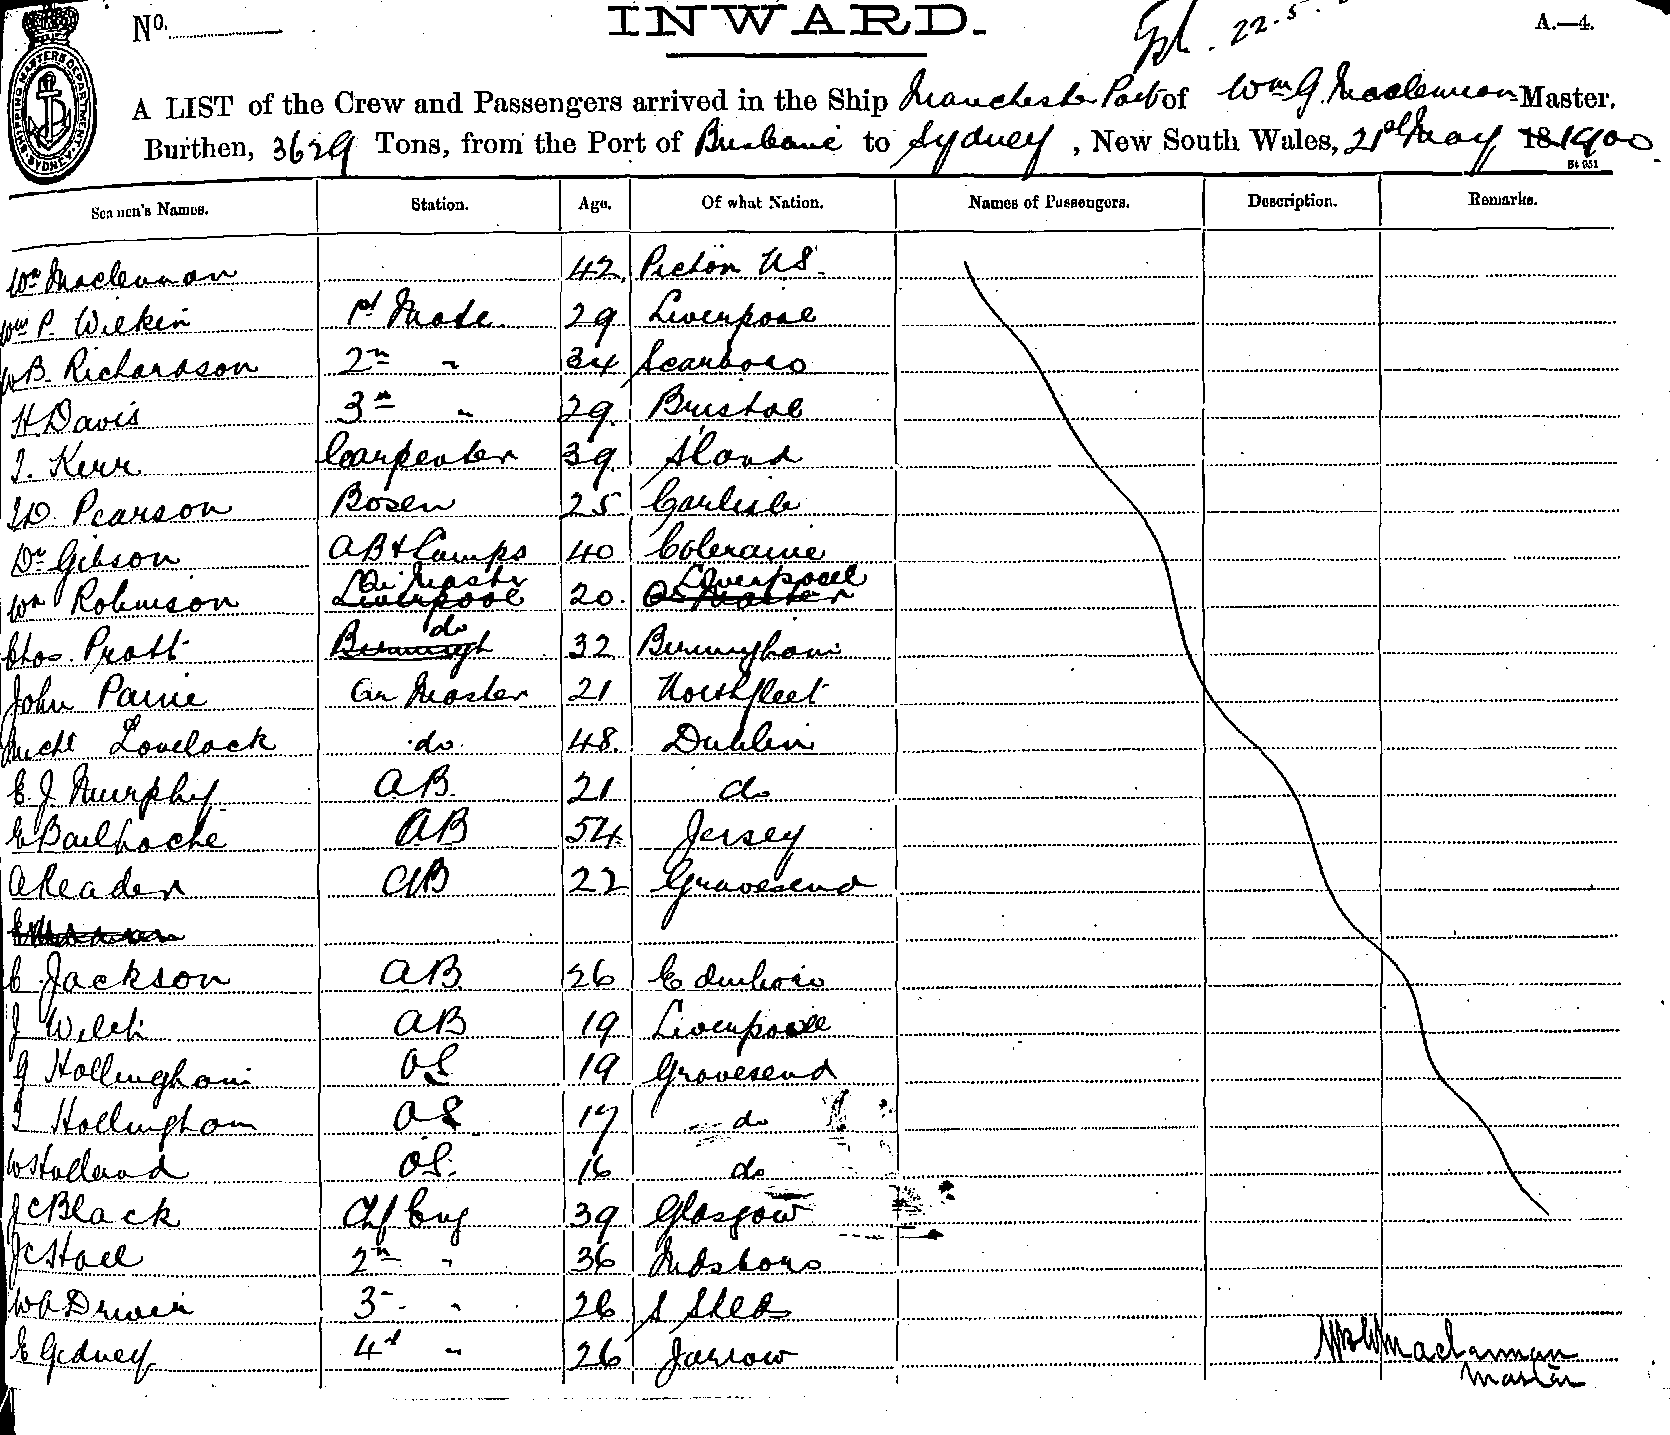 No.
INWARD.
22.5.
A.—4.
A LIST of the Crew and Passengers arrived in the Ship Manchester Port of Wm G. Maclennan Master,
Burthen, 3629 Tons, from the Port of Brisbane to Sydney, New South Wales, 21st May 1900
Seamen's Names. Station. Age. Of what Nation. Names of Passengers. Description. Remarks.
Wm Maclennan 42 Picton NS.
Wm P. Wilkin 1st Mate 29 Liverpool
WB. Richardson 2nd " 34 Scarboro
H Davis 3rd " 29 Bristol
J. Kerr Carpenter 39
Pearson Bosen 25 Carlisle
Dn Gibson AB & Lamps 40 Coleraine
Wm Robinson Qr Master 20 Liverpool
Chas. Pratt do 32 Birmingham
John Paine Qr Master 21 Northfleet
Michl Lovelock do 48 Dublin
E. J. Murphy AB. 21 do
E Bailhache AB 54 Jersey
A Reader AB 22 Gravesend
C. Jackson AB 26 Edinboro
J Welch AB 19 Liverpool
G Hollingham OS 19 Gravesend
T Hollingham OS 17 do
W Holland OS. 16 do
J C Black Chf Eng 39 Glasgow
J C Hall 2nd " 36 Midsboro
3 " 26 S Shlds
E Gidney 4th " 26 Jarrow
Wm G Maclennan
Master